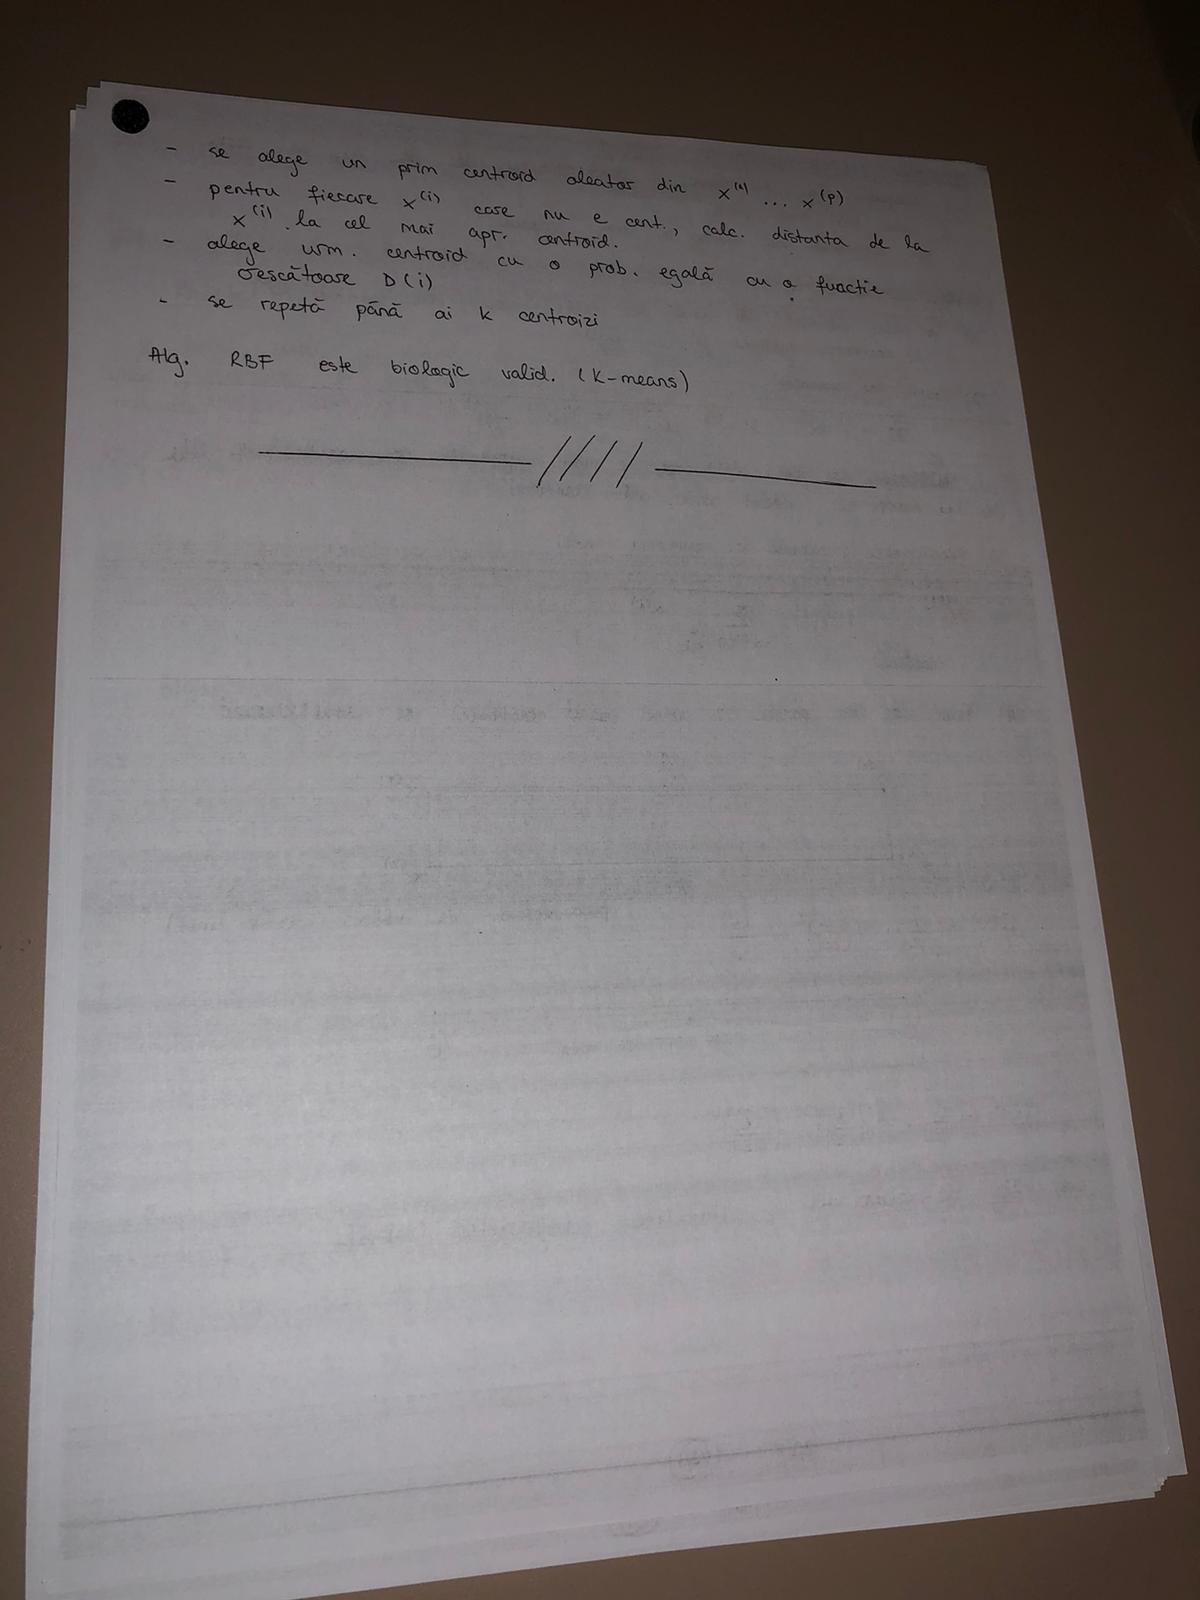 - se alege un prim centroid aleator din x⁽¹⁾ ... x⁽ᵖ⁾
- pentru fiecare x⁽ⁱ⁾ care nu e cent., calc. distanta de la
x⁽ⁱ⁾ la cel mai apr. centroid.
- alege urm. centroid cu o prob. egală cu o funcție
crescătoare D(i)
- se repetă până ai k centroizi
Alg. RBF este biologic valid. (K-means)